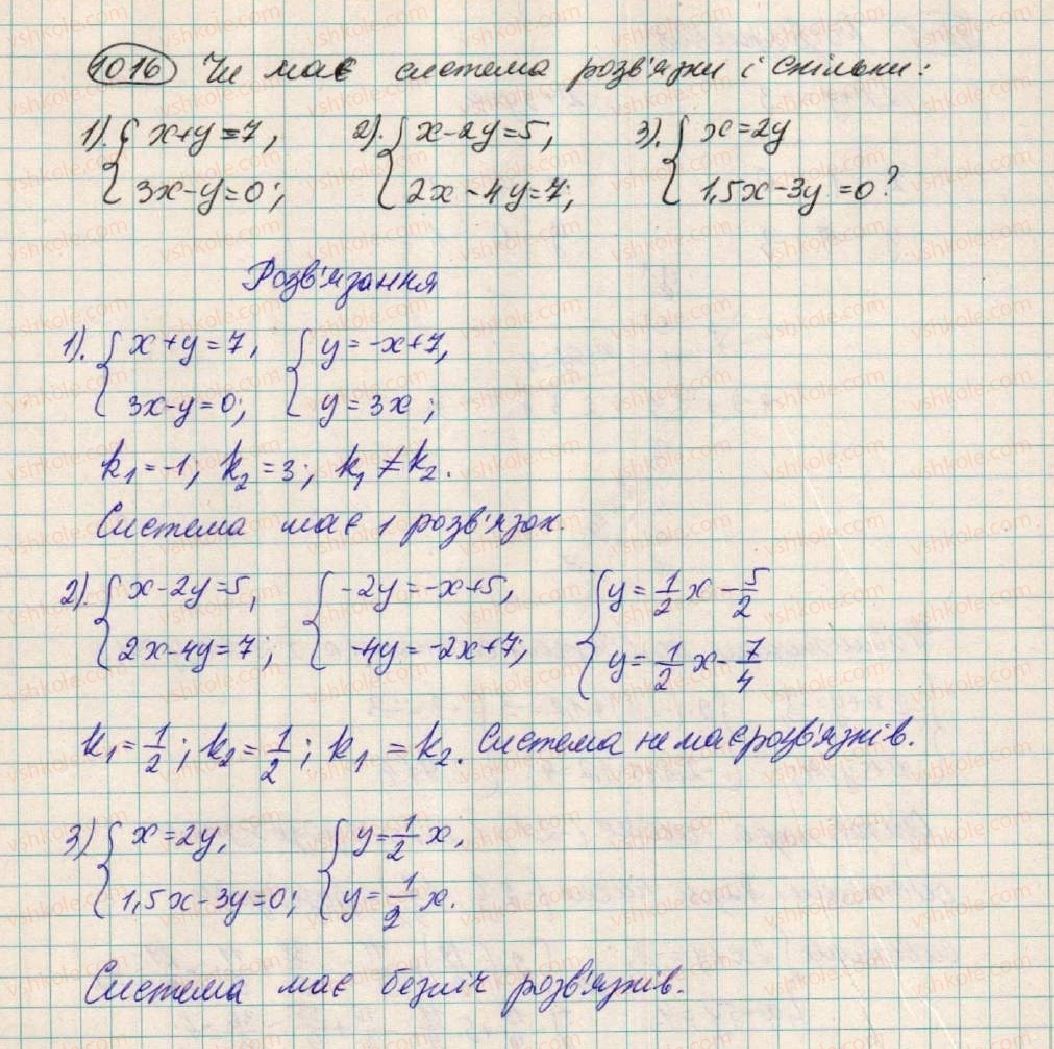 1016 Чи має система розв'язки і скільки:
1). { x+y=7, 2). { x-2y=5, 3). { x=2y
3x-y=0; 2x-4y=7; 1,5x-3y=0?
Розв'язання
1). { x+y=7, { y=-x+7,
3x-y=0; y=3x;
k₁=-1; k₂=3; k₁≠k₂.
Система має 1 розв'язок.
2). { x-2y=5, { -2y=-x+5, { y=1/2 x - 5/2
2x-4y=7; -4y=-2x+7; y=1/2 x - 7/4
k₁=1/2; k₂=1/2; k₁=k₂. Система не має розв'язків.
3) { x=2y, { y=1/2 x,
1,5x-3y=0; y=1/2 x.
Система має безліч розв'язків.
vshkole.com